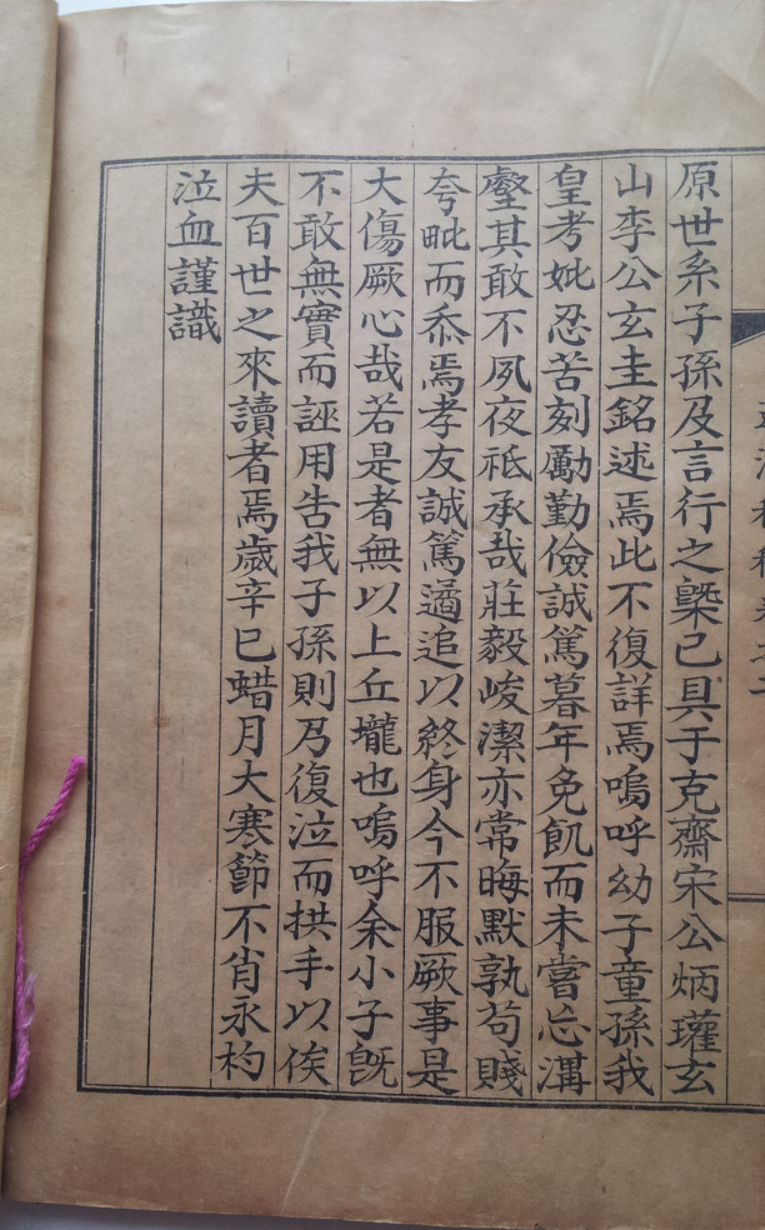 原世系子孫及言行之槩已具于克齋宋公炳瓘玄
山李公玄圭銘述焉此不復詳焉嗚呼幼子童孫我
皇考妣忍苦刻勵勤儉誠篤暮年免飢而未嘗忘溝
壑其敢不夙夜祗承哉莊毅峻潔亦常晦默孰苟賤
夸毗而忝焉孝友誠篤遹追以終身今不服厥事是
大傷厥心哉若是者無以上丘壠也嗚呼余小子旣
不敢無實而誣用告我子孫則乃復泣而拱手以俟
夫百世之來讀者焉歲辛巳蜡月大寒節不肖永杓
泣血謹識